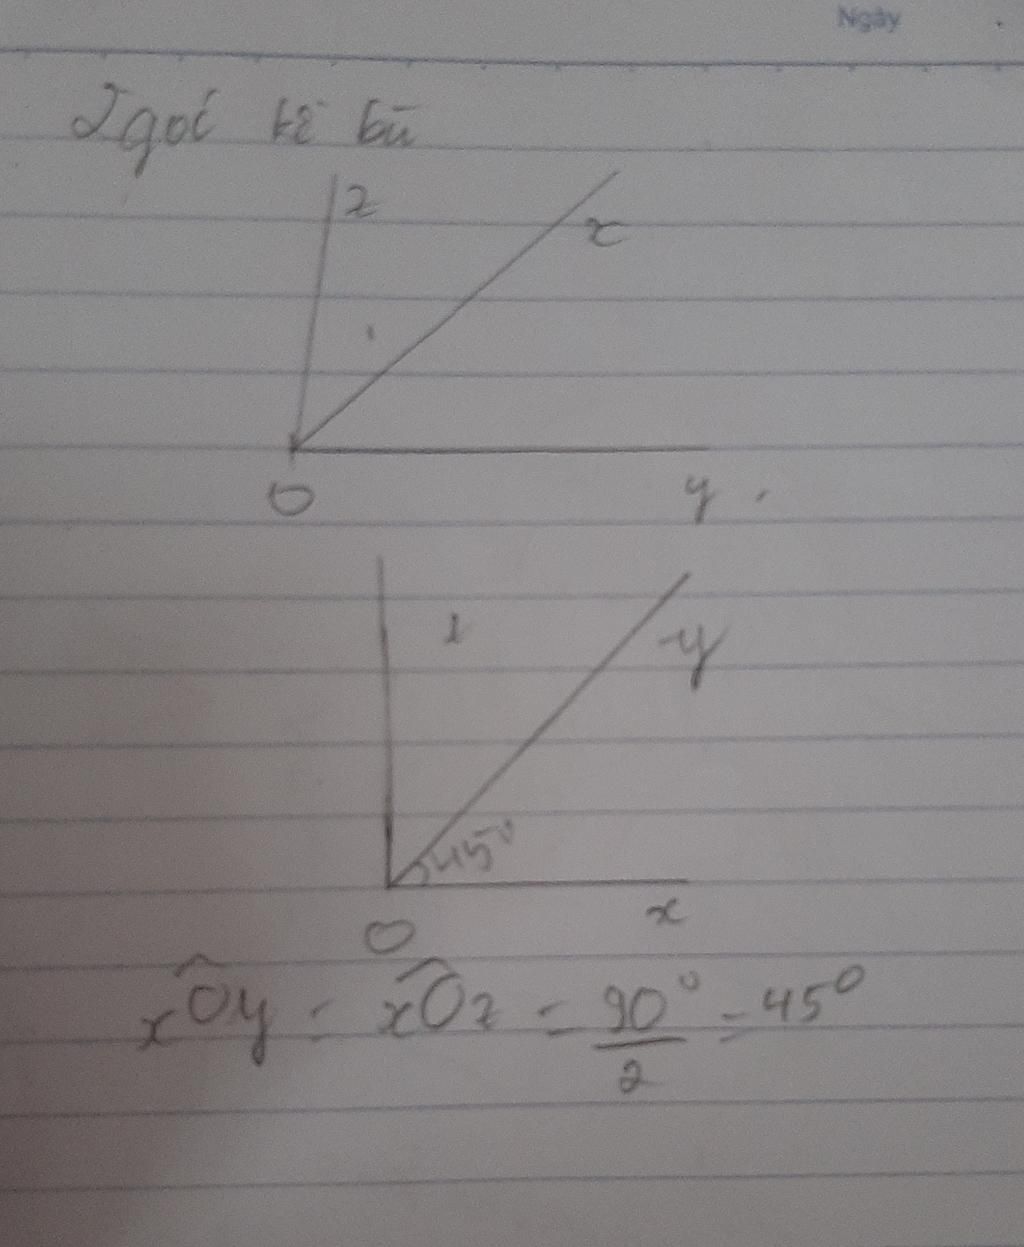 Ngày
2 góc kề bù
z
x
O
y
z
y
45°
O
x
xOy = xOz = 90°/2 = 45°